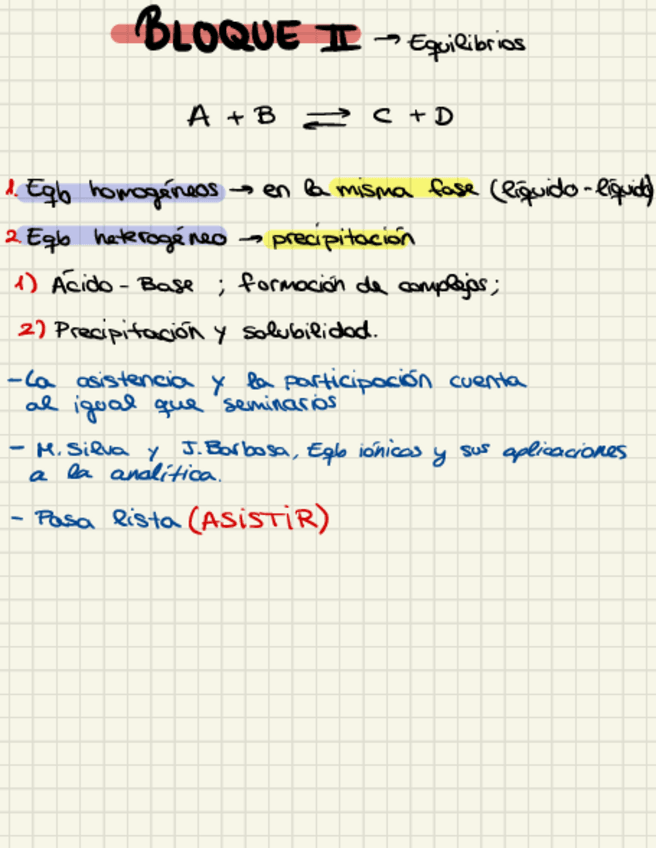 BLOQUE II → Equilibrios
A + B ⇌ C + D
1. Eqb homogéneos → en la misma fase (líquido-líquido)
2. Eqb heterogéneo → precipitación
1) Ácido-Base ; formación de complejos;
2) Precipitación y solubilidad.
- La asistencia y la participación cuenta
al igual que seminarios
- M. Silva y J. Barbosa, Eqb iónicos y sus aplicaciones
a la analítica.
- Pasa lista (ASISTIR)